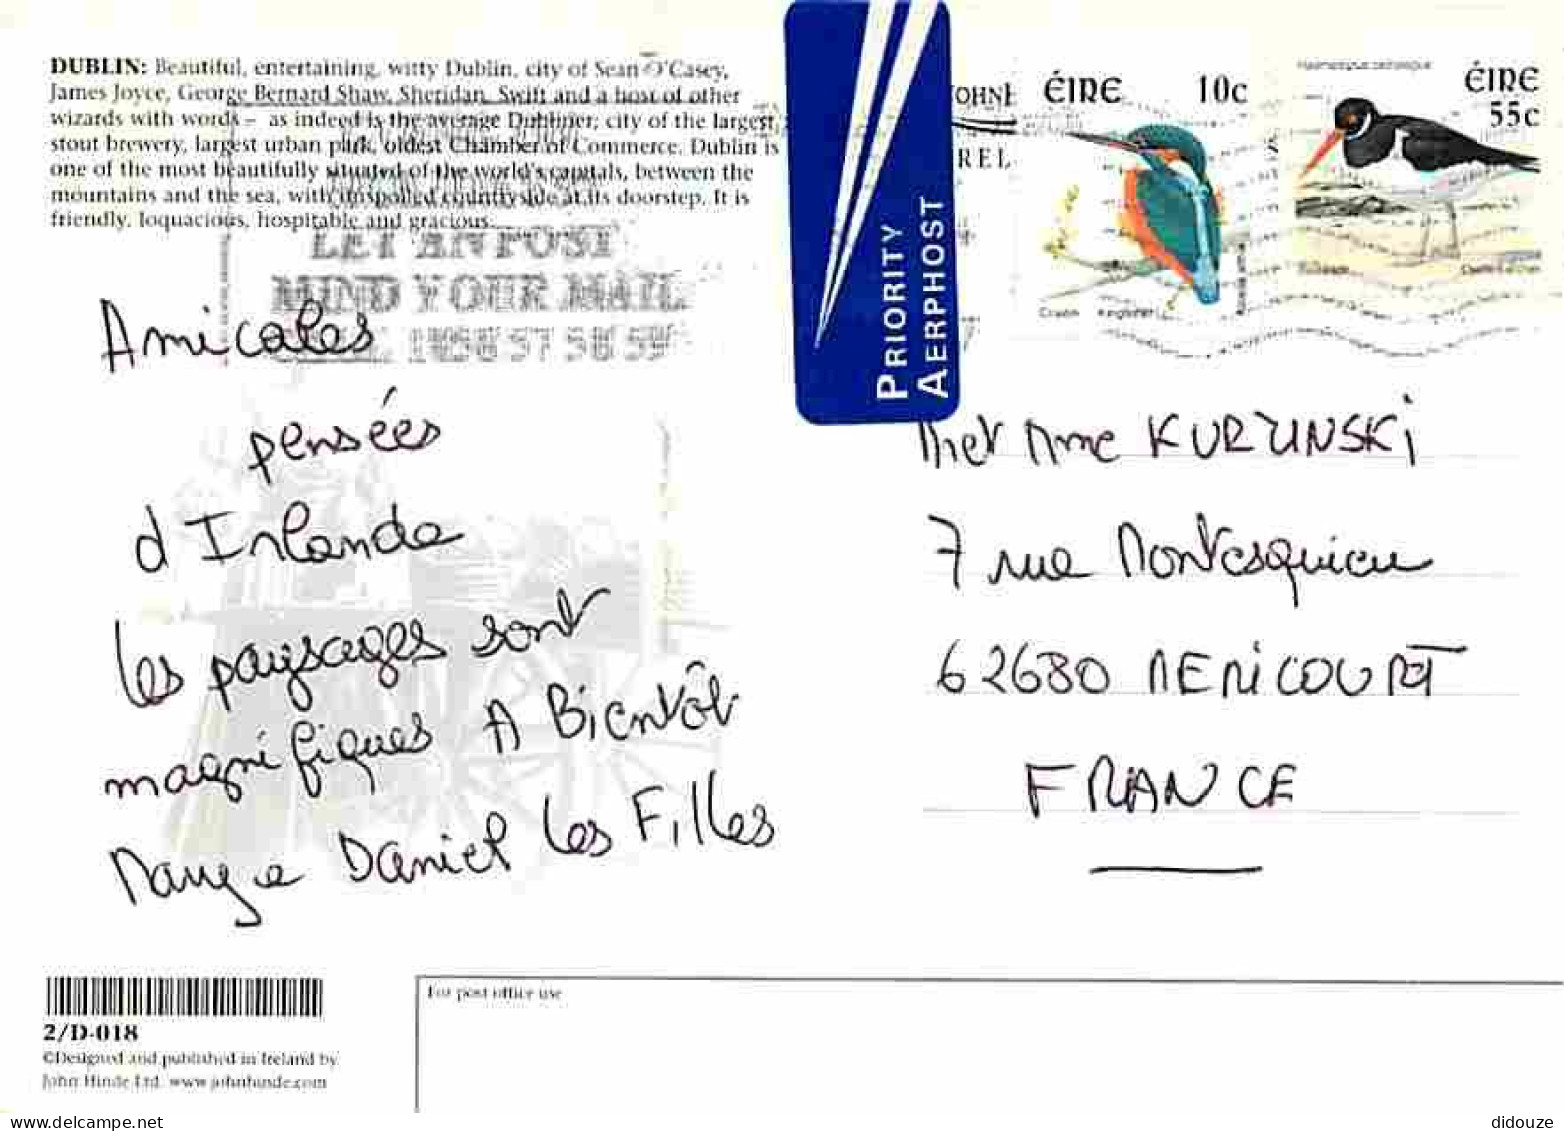 DUBLIN: Beautiful, entertaining, witty Dublin, city of Sean O'Casey,
James Joyce, George Bernard Shaw, Sheridan, Swift and a host of other
wizards with words – as indeed is the average Dubliner; city of the largest
stout brewery, largest urban park, oldest Chamber of Commerce. Dublin is
one of the most beautifully situated of the world's capitals, between the
mountains and the sea, with unspoiled countryside at its doorstep. It is
friendly, loquacious, hospitable and gracious.
LET AN POST
MIND YOUR MAIL
1850 57 58 59
Amicales
pensées
d Irlande
les paysages sont
magnifiques A Bientôt
Daniel les Filles
PRIORITY
AERPHOST
JOHN
IREL
ÉIRE 10c
Kingfisher
ÉIRE
55c
Oystercatcher
M et Mme KURZUNSKI
7 rue Montesquieu
62680 MERICOURT
FRANCE
2/D-018
©Designed and published in Ireland by
John Hinde Ltd. www.johnhinde.com
For post office use
www.delcampe.net
didouze